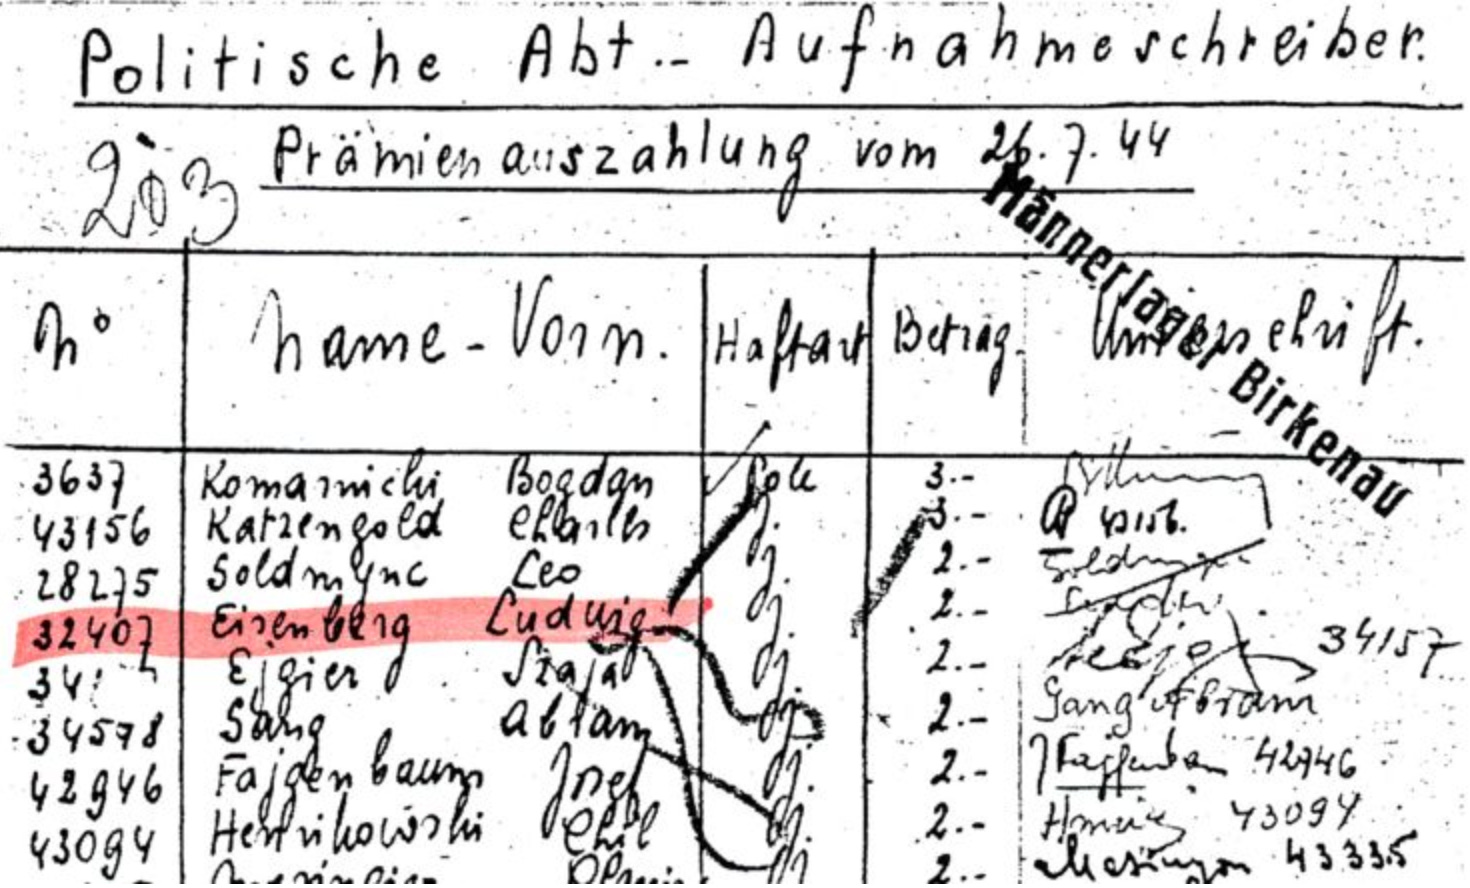 Politische Abt.- Aufnahmeschreiber.
203 Prämienauszahlung vom 26.7.44
Männerlager Birkenau
N° Name - Vorn. Haftart Betrag. Unterschrift.
3637 Komarnicki Bogdan Pole 3.-
43156 Katzengold Charles J. 3.- 43156.
28275 Soldmync Leo J. 2.-
32407 Eisenberg Ludwig J. 2.-
34 Ejgier Szaja J. 2.- 34157
34578 Sang Abram J. 2.- Sang Abram
42946 Fajgenbaum Josef J. 2.- 42946
43094 Henrikowski Chil J. 2.- 43094
2.- 43335